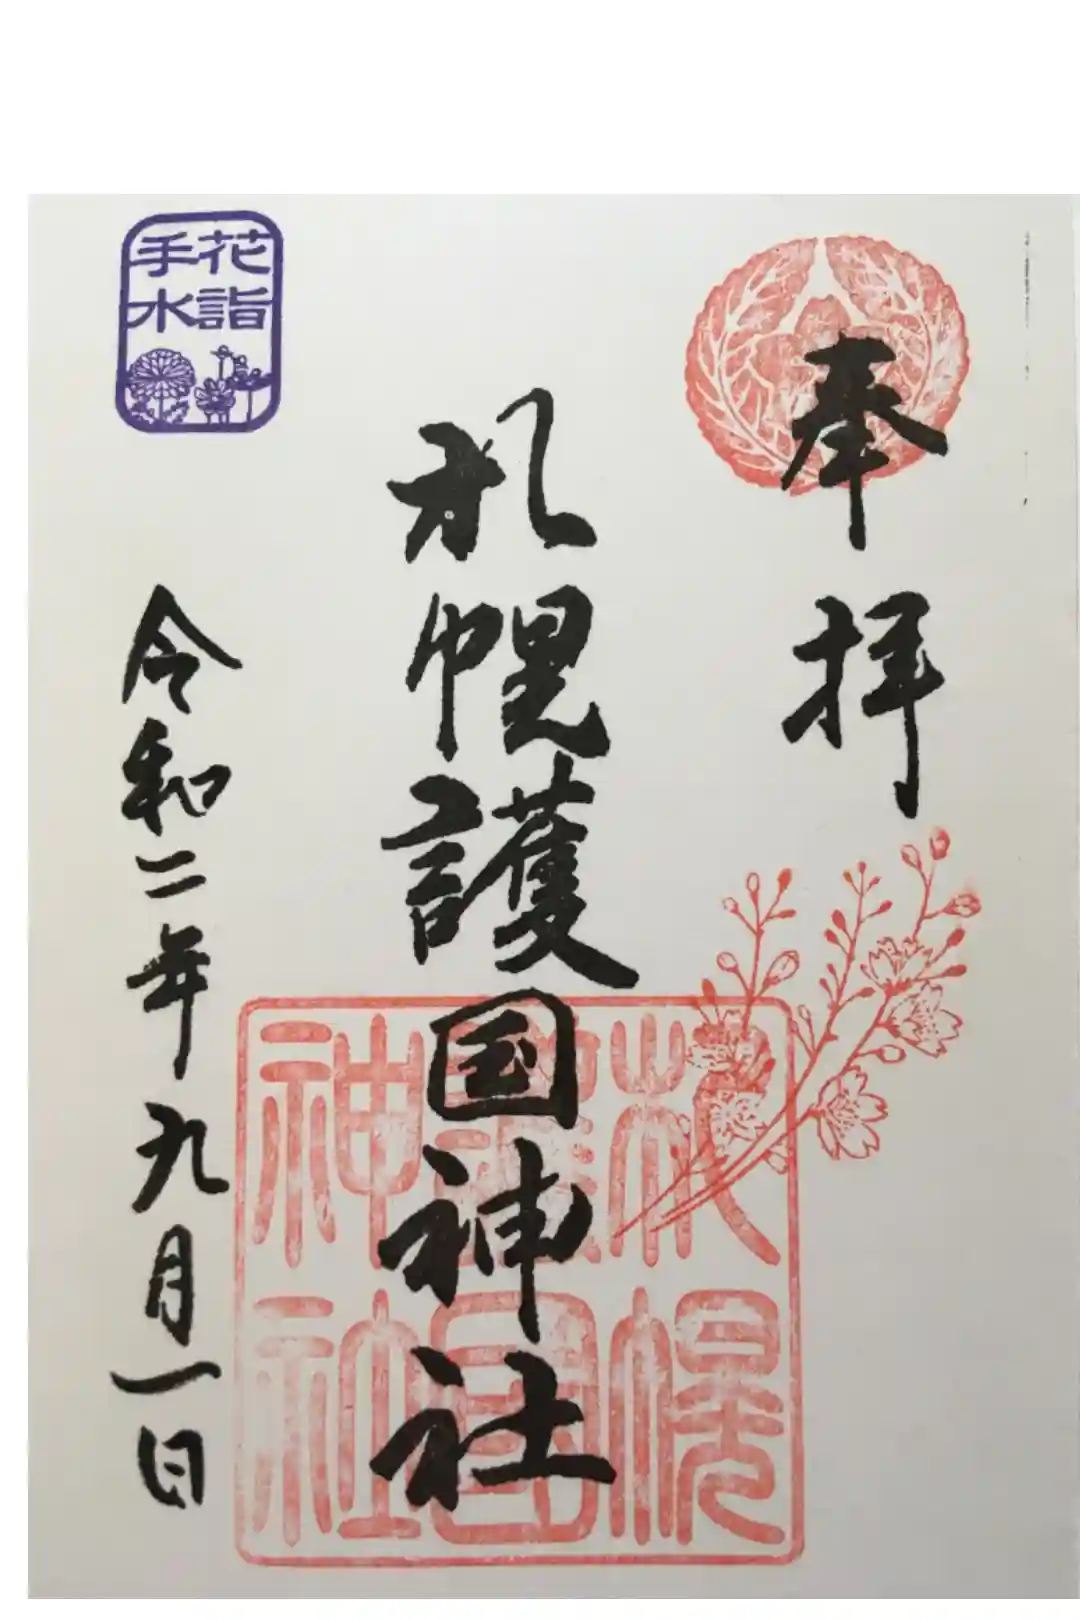 奉拝
札幌護国神社
令和二年九月一日
花詣
手水
札幌
護国
神社